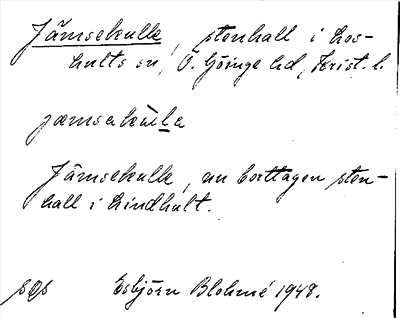 Jämsekulle, stenhall i Los-
hults sn, Ö. Göinge hd, Krist. l.
jæmsekùlle
Jämsekulle, nu borttagen sten-
hall i Lindhult.
Esbjörn Blohmé 1948.